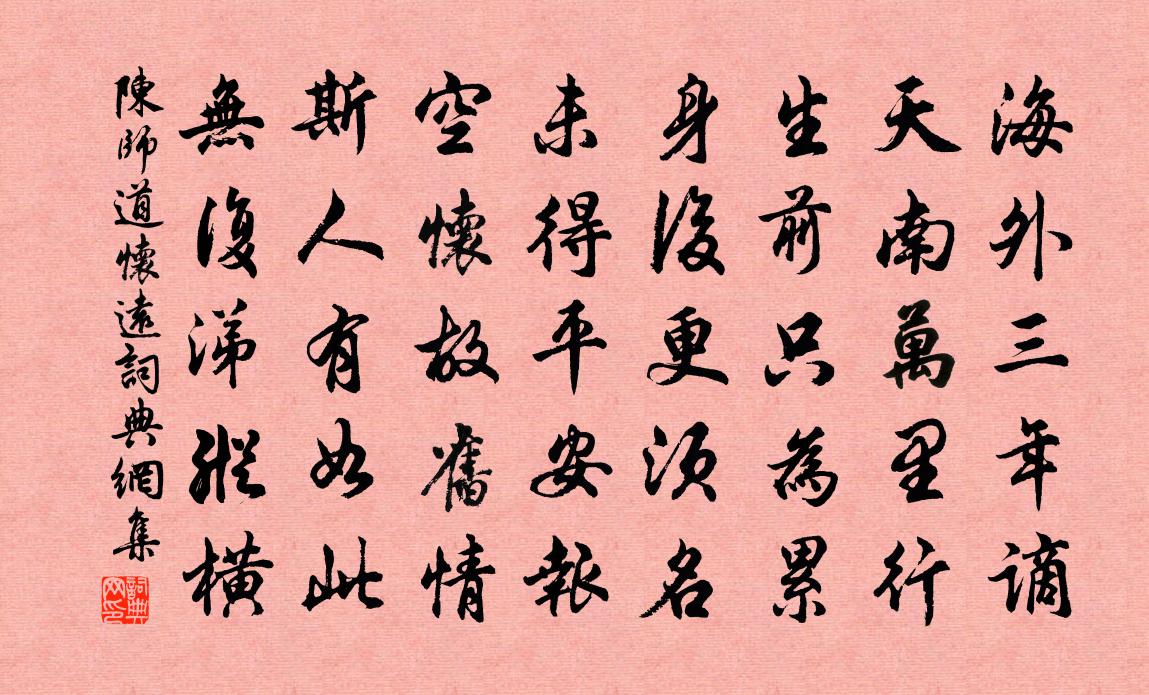 海外三年謫
天南萬里行
生前只為累
身後更須名
未得平安報
空懷故舊情
斯人有如此
無復涕縱横
陳師道懷遠詞典網集
詞典网印